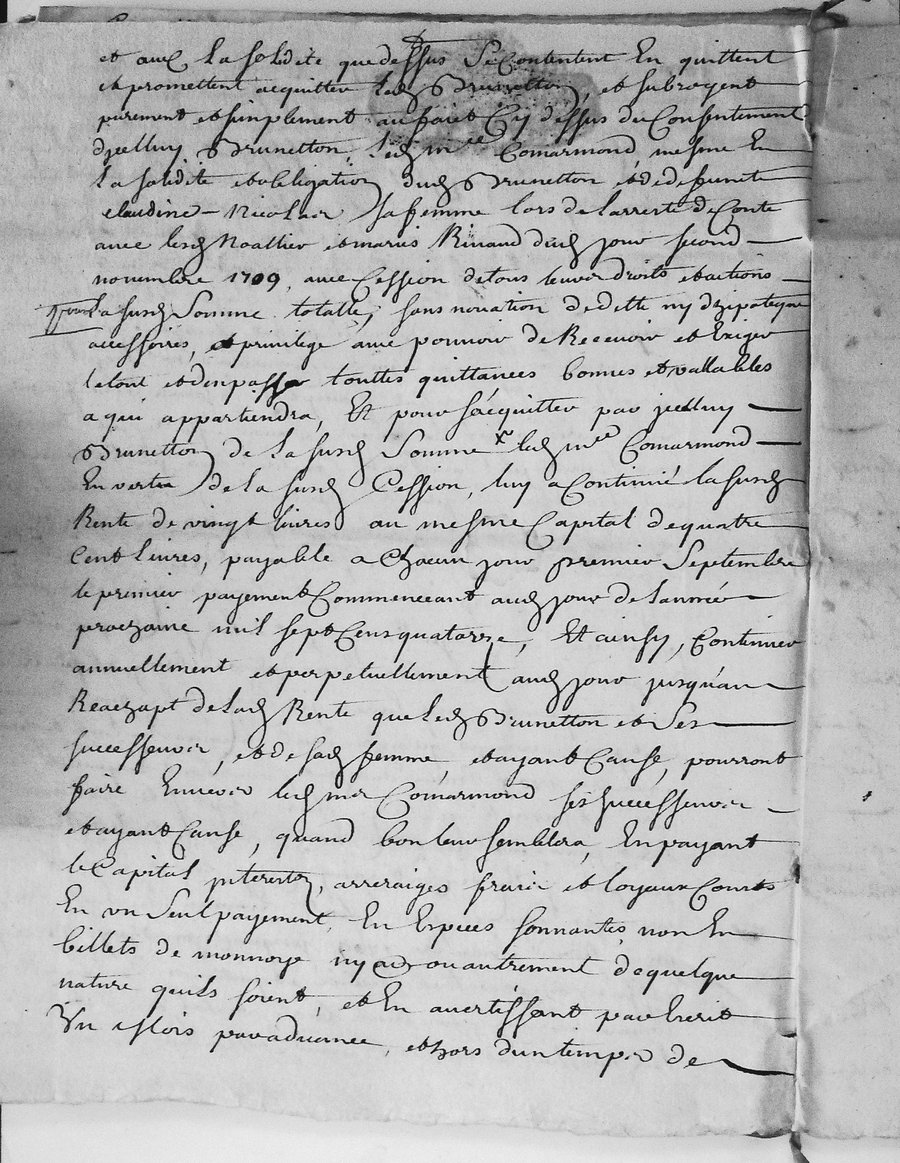 et avec la solidité que dessus se contentent En quittent
et promettent acquitter led Brunetton, et subrogent
purement et simplement au fait Cy dessus du Consentement
dyceluy Brunetton, led mre Comarmond, mesme En
la solidité et obligation dud Brunetton et de deffuncte
claudine Nicolas sa femme lors de larresté de Conte
avec lesd Noallier et maries Rinaud dud jour second
novembre 1709, avec Cession de tous leurs droits et actions
la susd Somme totalle, sans novation de dette ny dypoteque
accessoires, et privilege avec pouvoir de Recevoir et Exiger
le tout et den passer touttes quittances bonnes et vallables
a qui appartiendra, Et pour sacquitter par yceluy
Brunetton de la susd Somme x led mre Comarmond
En vertu de la susd Cession, luy a Continué la susd
Rente de vingt livres au mesme Capital de quatre
Cent livres, payable a Chacun jour premier Septembre
le premier payement Commenceant aud jour de lannée
prochaine mil sept Cens quatorze, Et ainsy, Continuer
annuellement et perpetuellement aud jour jusquau
Reachapt de lad Rente que led Brunetton et Ses
successeurs, et de sad femme, et ayant Cause, pourront
faire Envers led mre Comarmond ses successeurs
et ayant Cause, quand bon leur semblera, En payant
le Capital jnterests, arreraiges fraix et loyaux Couts
En un Seul payement, En Especes sonnantes, non En
billets de monnoye ny ou autrement de quelque
nature quils soient, et En avertissant par Escrit
Un Mois par advance, et hors dun temps de